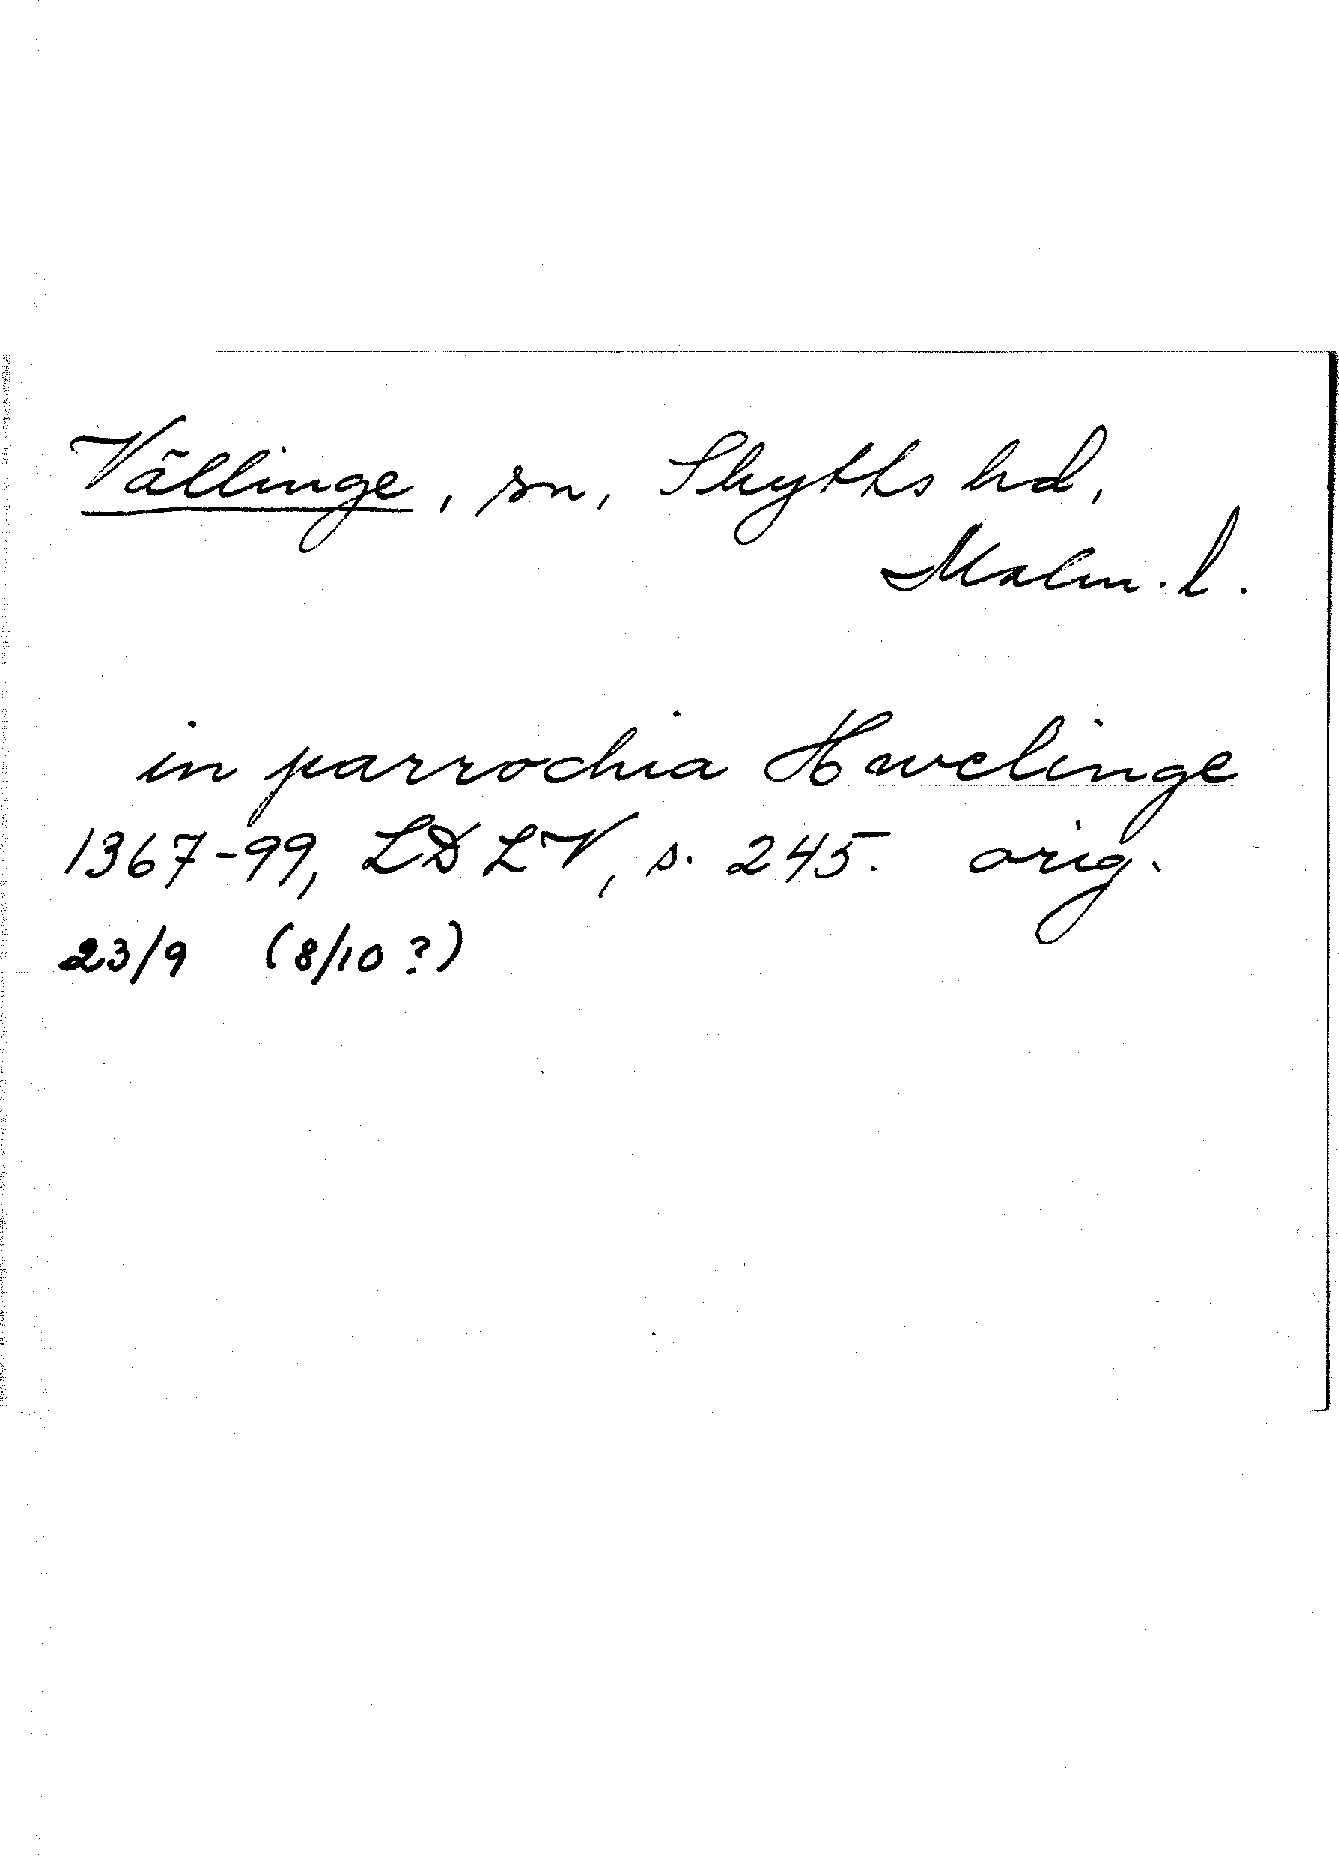 Vällinge, sn, Skytts hd,
Malm. l.
in parrochia Hwelinge
1367-99, LDLV, s. 245. orig.
23/9 (8/10?)